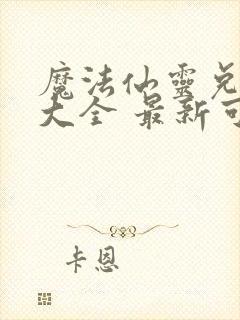 魔法仙靈兑
大全 最新可
卡恩